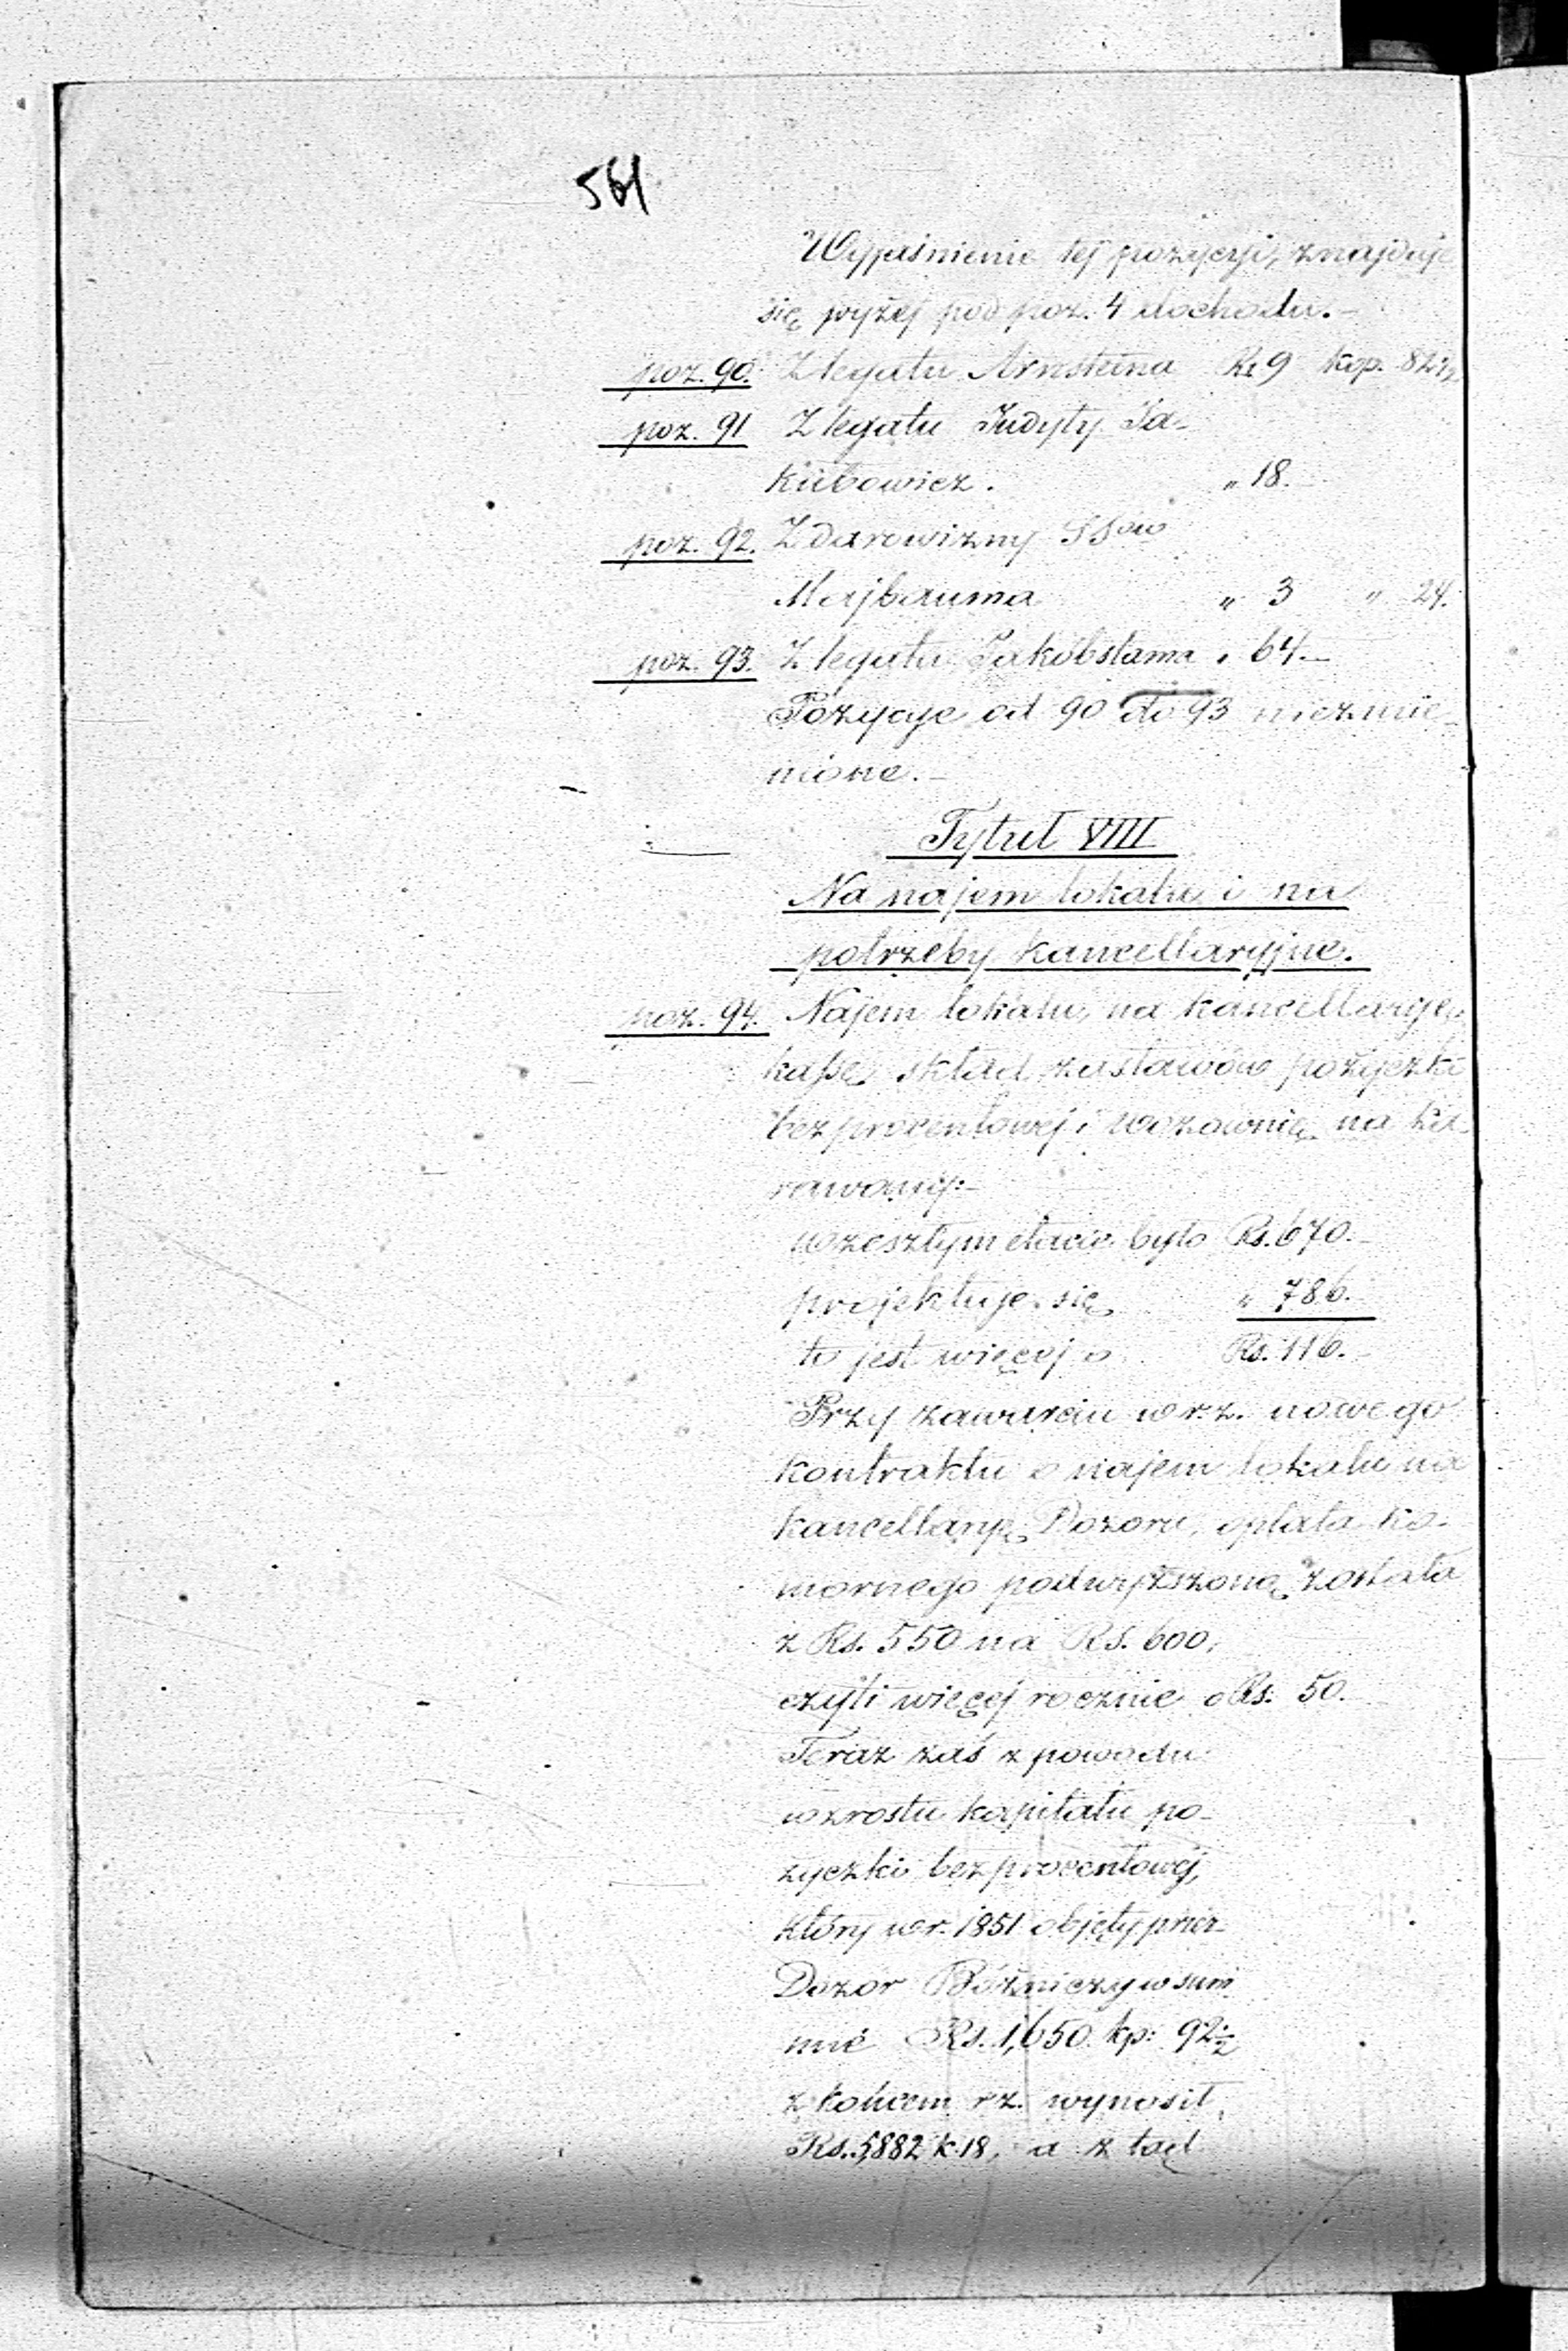 561
Wyjaśnienie tej pozycyi, znajduje
się wyżej pod poz. 4 dochodu.-
poz. 90. Z legatu Arnsteina Rs 9 kop. 82½
poz. 91 Z legatu Judyty Ja-
kubowicz. " 18.
poz. 92. Z darowizny SSów
Majbauma " 3 " 24.
poz. 93. Z legatu Jakóbstama " 64.-
Pozycye od 90 do 93 niezmie-
nione.-
Tytuł VIII
Na najem lokalu i na
potrzeby kancellaryjne.
poz. 94. Najem lokalu na kancellaryę,
kassę, skład zastawów pożyczki
bezprocentowej i wozownię na ka-
rawany:-
w zeszłym etacie było Rs. 670.-
projektuje się " 786.
to jest więcej o Rs. 116.-
Przy zawarciu w r. z. nowego
kontraktu o najem lokalu na
kancellaryę Dozoru, opłata ko-
mornego podwyższoną została
z Rs. 550 na Rs. 600,
czyli więcej rocznie o Rs: 50.
Teraz zaś z powodu
wzrostu kapitału po-
życzki bezprocentowej,
który w r. 1851 objęty przez
Dozór Bóżniczy w sum
mie Rs. 1,650 kp: 92½
z końcem r. z. wynosił,
Rs. 5,882 k. 18, a z tąd